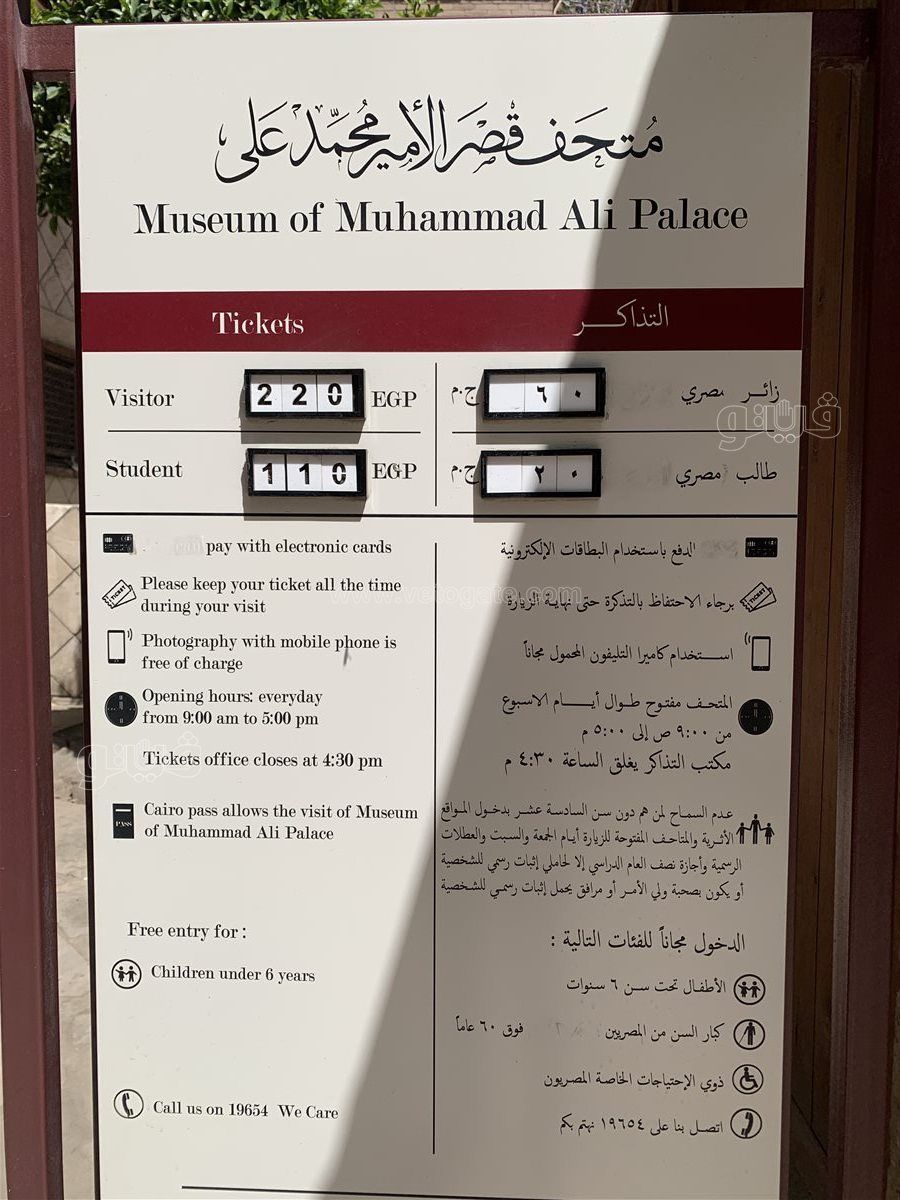 متحف قصر الأمير محمد علي
Museum of Muhammad Ali Palace
Tickets
التذاكر
Visitor 220 EGP
زائر مصري ٦٠ ج.م
Student 110 EGP
طالب مصري ٢٠ ج.م
pay with electronic cards
الدفع باستخدام البطاقات الإلكترونية
Please keep your ticket all the time
during your visit
برجاء الاحتفاظ بالتذكرة حتى نهاية الزيارة
Photography with mobile phone is
free of charge
استخدام كاميرا التليفون المحمول مجاناً
Opening hours: everyday
from 9:00 am to 5:00 pm
المتحف مفتوح طوال أيام الاسبوع
من ٩:٠٠ ص إلى ٥:٠٠ م
Tickets office closes at 4:30 pm
مكتب التذاكر يغلق الساعة ٤:٣٠ م
PASS
Cairo pass allows the visit of Museum
of Muhammad Ali Palace
عدم السماح لمن هم دون سن السادسة عشر بدخول المواقع
الأثرية والمتاحف المفتوحة للزيارة أيام الجمعة والسبت والعطلات
الرسمية وأجازة نصف العام الدراسي إلا لحاملي إثبات رسمي للشخصية
أو يكون بصحبة ولي الأمر أو مرافق يحمل إثبات رسمي للشخصية
Free entry for :
الدخول مجاناً للفئات التالية :
Children under 6 years
الأطفال تحت سن ٦ سنوات
كبار السن من المصريين فوق ٦٠ عاماً
ذوي الإحتياجات الخاصة المصريون
Call us on 19654 We Care
اتصل بنا على ١٩٦٥٤ نهتم بكم
TICKET
TICKET
www.vetogate.com
ڤيتو
ڤيتو